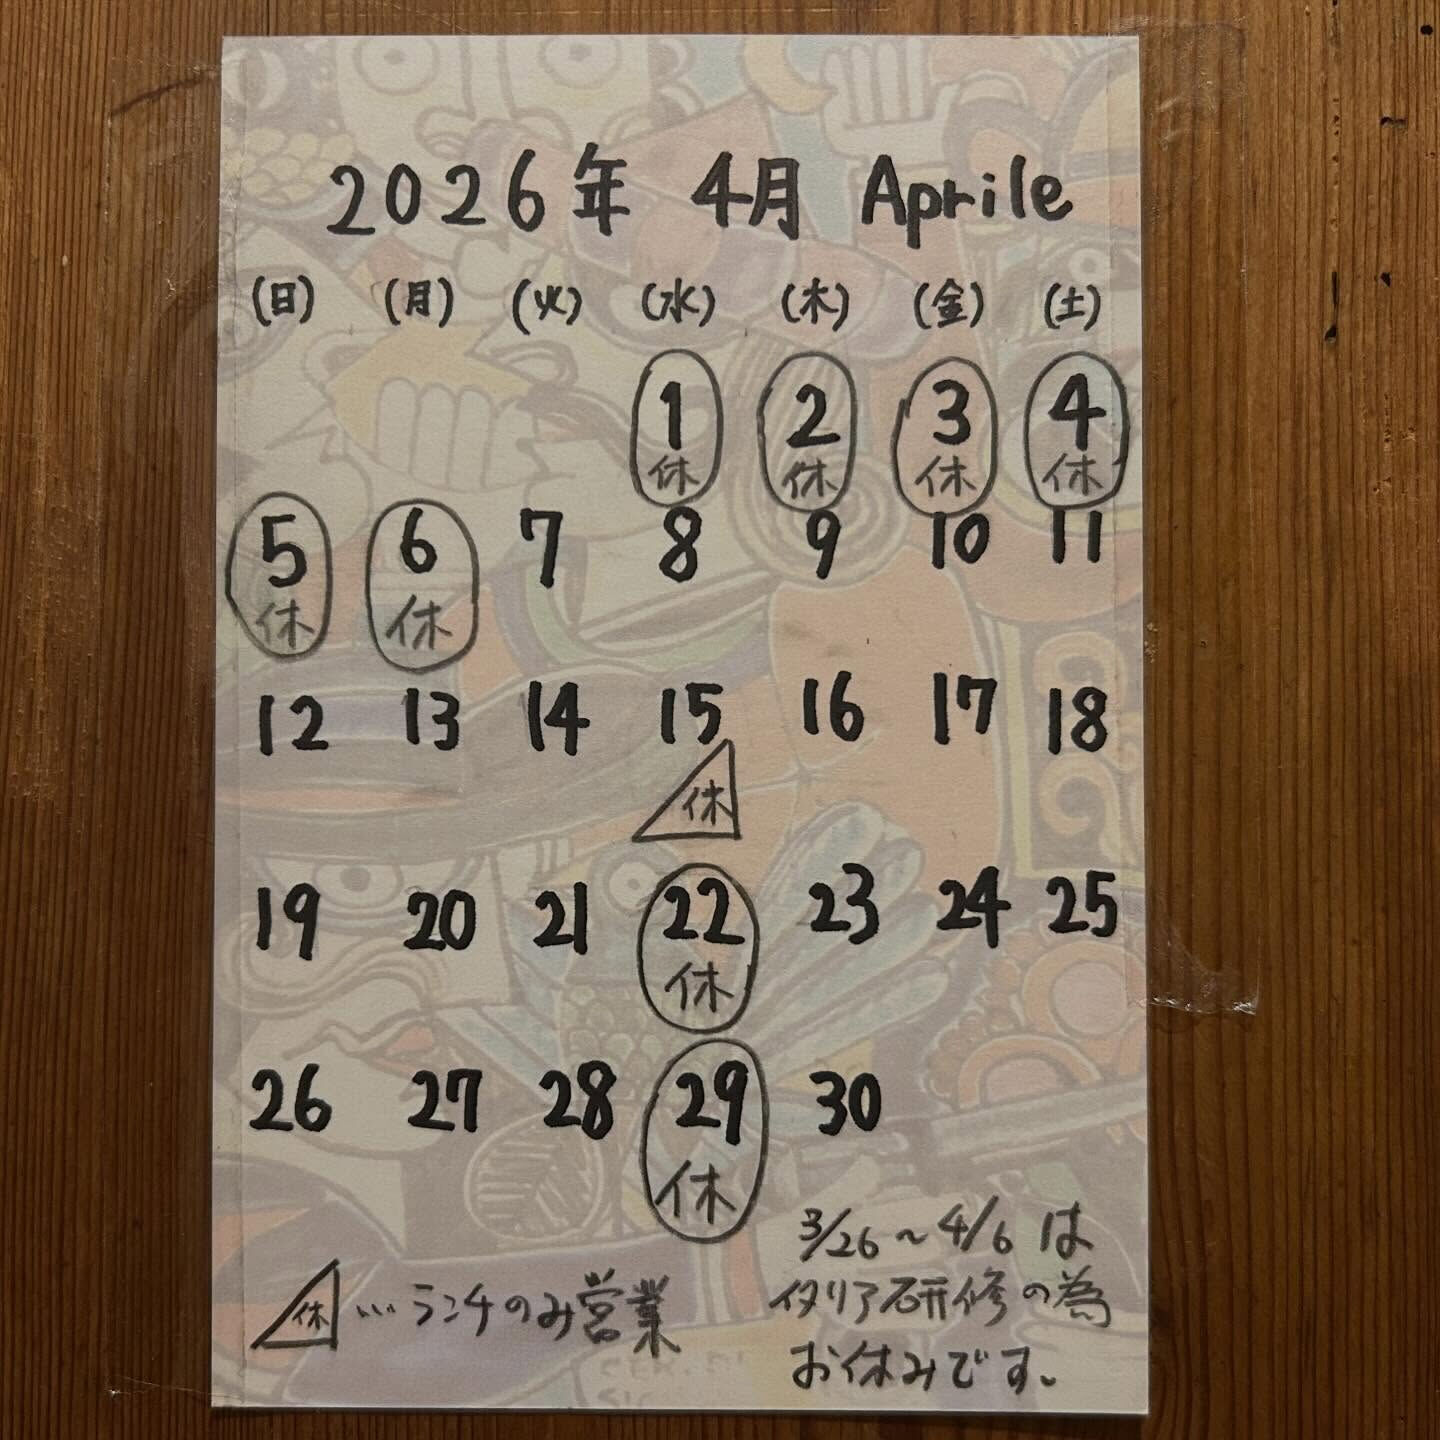 2026年 4月 Aprile
(日) (月) (火) (水) (木) (金) (土)
1 2 3 4
休 休 休 休
5 6 7 8 9 10 11
休 休
12 13 14 15 16 17 18
休
19 20 21 22 23 24 25
休
26 27 28 29 30
休
3/26〜4/6は
イタリア研修の為
お休みです。
休 … ランチのみ営業